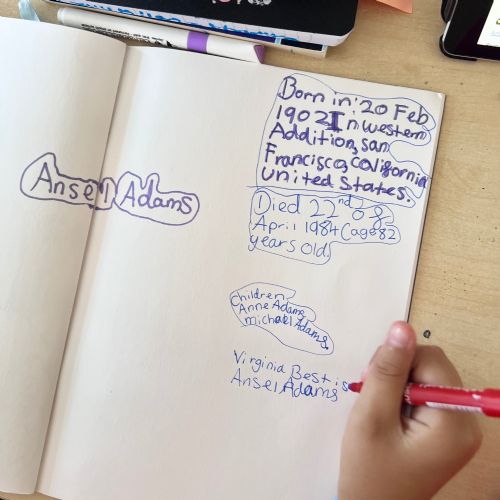 Ansel Adams
Born in: 20 Feb
1902 In western
Addition, san
Francisco, california
United States.
Died 22nd of
April 1984 (age 82
years old.
Children
Anne Adams
michael Adams.
Virginia Best is
Ansel Adams